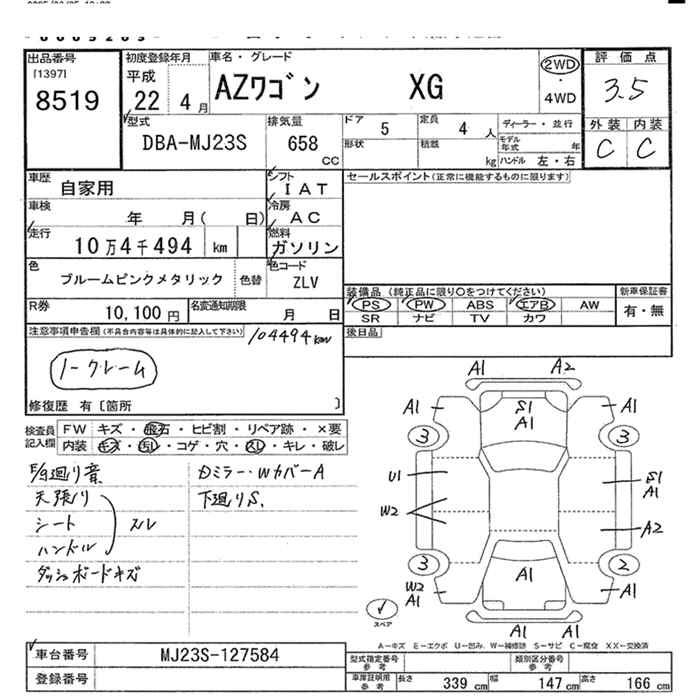 出品番号
[1397]
8519
初度登録年月
平成
22 4月
車名・グレード
AZワゴン XG
2WD
・
4WD
評価点
3.5
外装 内装
C C
型式
DBA-MJ23S
排気量
658
CC
ドア 5
定員 4 人
形状
積載 kg
ディーラー・並行
モデル年式 年
ハンドル 左・右
車歴
自家用
シフト
IAT
セールスポイント(正常に機能するものに限ります)
車検
年 月( 日)
冷房
AC
走行
10万4千494 km
燃料
ガソリン
色
ブルームピンクメタリック
色替
色コード
ZLV
装備品 (純正品に限り○をつけてください)
PS PW ABS エアB AW
SR ナビ TV カワ
新車保証書
有・無
R券
10,100円
名変通知期限
月 日
注意事項申告欄(不具合内容等は具体的に記入して下さい)
104494km
後日品
ノークレーム
修復歴 有〔箇所 〕
検査員記入欄
FW キズ・飛石・ヒビ割・リペア跡・×要
内装 キズ・汚レ・コゲ・穴・スレ・キレ・破レ
天張り
シート
ハンドル
スレ
ダッシュボードキズ
Dミラー・WカバーA
下廻りS.
A1 A2
A1 S1 A1 A1
3 3
U1 S1 A1
W2 A2
3 2
W2 A1 A1 A1
A1 A1
スペア
A-キズ E-エクボ U-凹み W-補修跡 S-サビ C-腐食 XX-交換済
車台番号
MJ23S-127584
登録番号
型式指定番号 参考
類別区分番号 参考
車庫証明用 参考
長さ 339 cm 幅 147 cm 高さ 166 cm